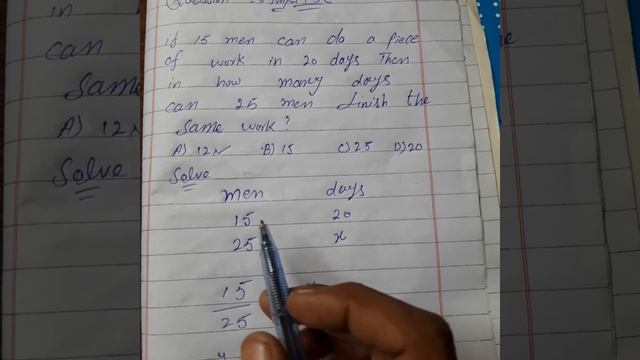 Question
if 15 men can do a piece
of work in 20 days Then
in how many days
can 25 men finish the
same work?
A) 12✓ B) 15 C) 25 D) 20
Solve
men days
15 20
25 x
15
25